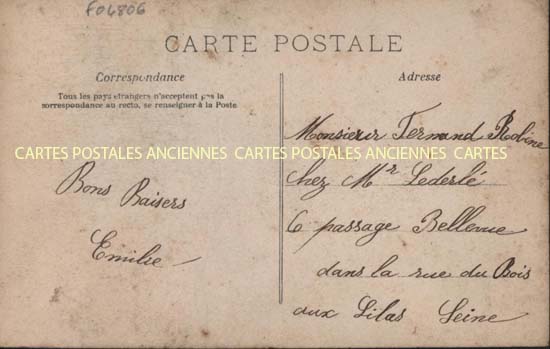 F04806
CARTE POSTALE
Correspondance
Tous les pays etrangers n'acceptent pas la
correspondance au recto, se renseigner à la Poste
Adresse
CARTES POSTALES ANCIENNES CARTES POSTALES ANCIENNES CARTES
Bons Baisers
Emilie
Monsieur Fernand
chez Mr Lederlé
6 passage Bellevue
dans la rue du Bois
aux Lilas Seine